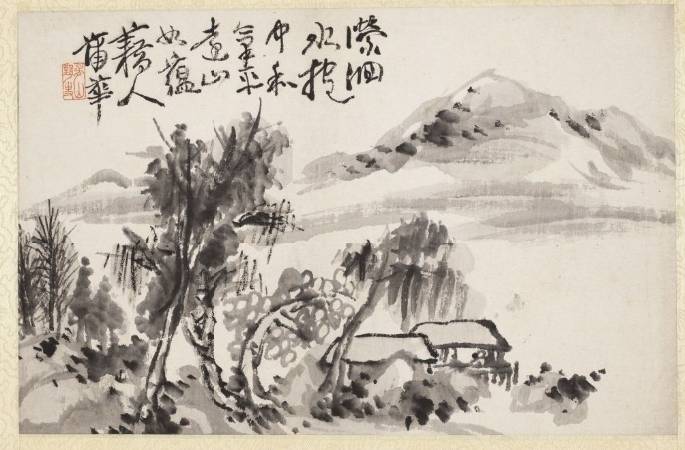 瀠洄
水抱
中和
氣平
遠山
如蘊
藉人
蒲華